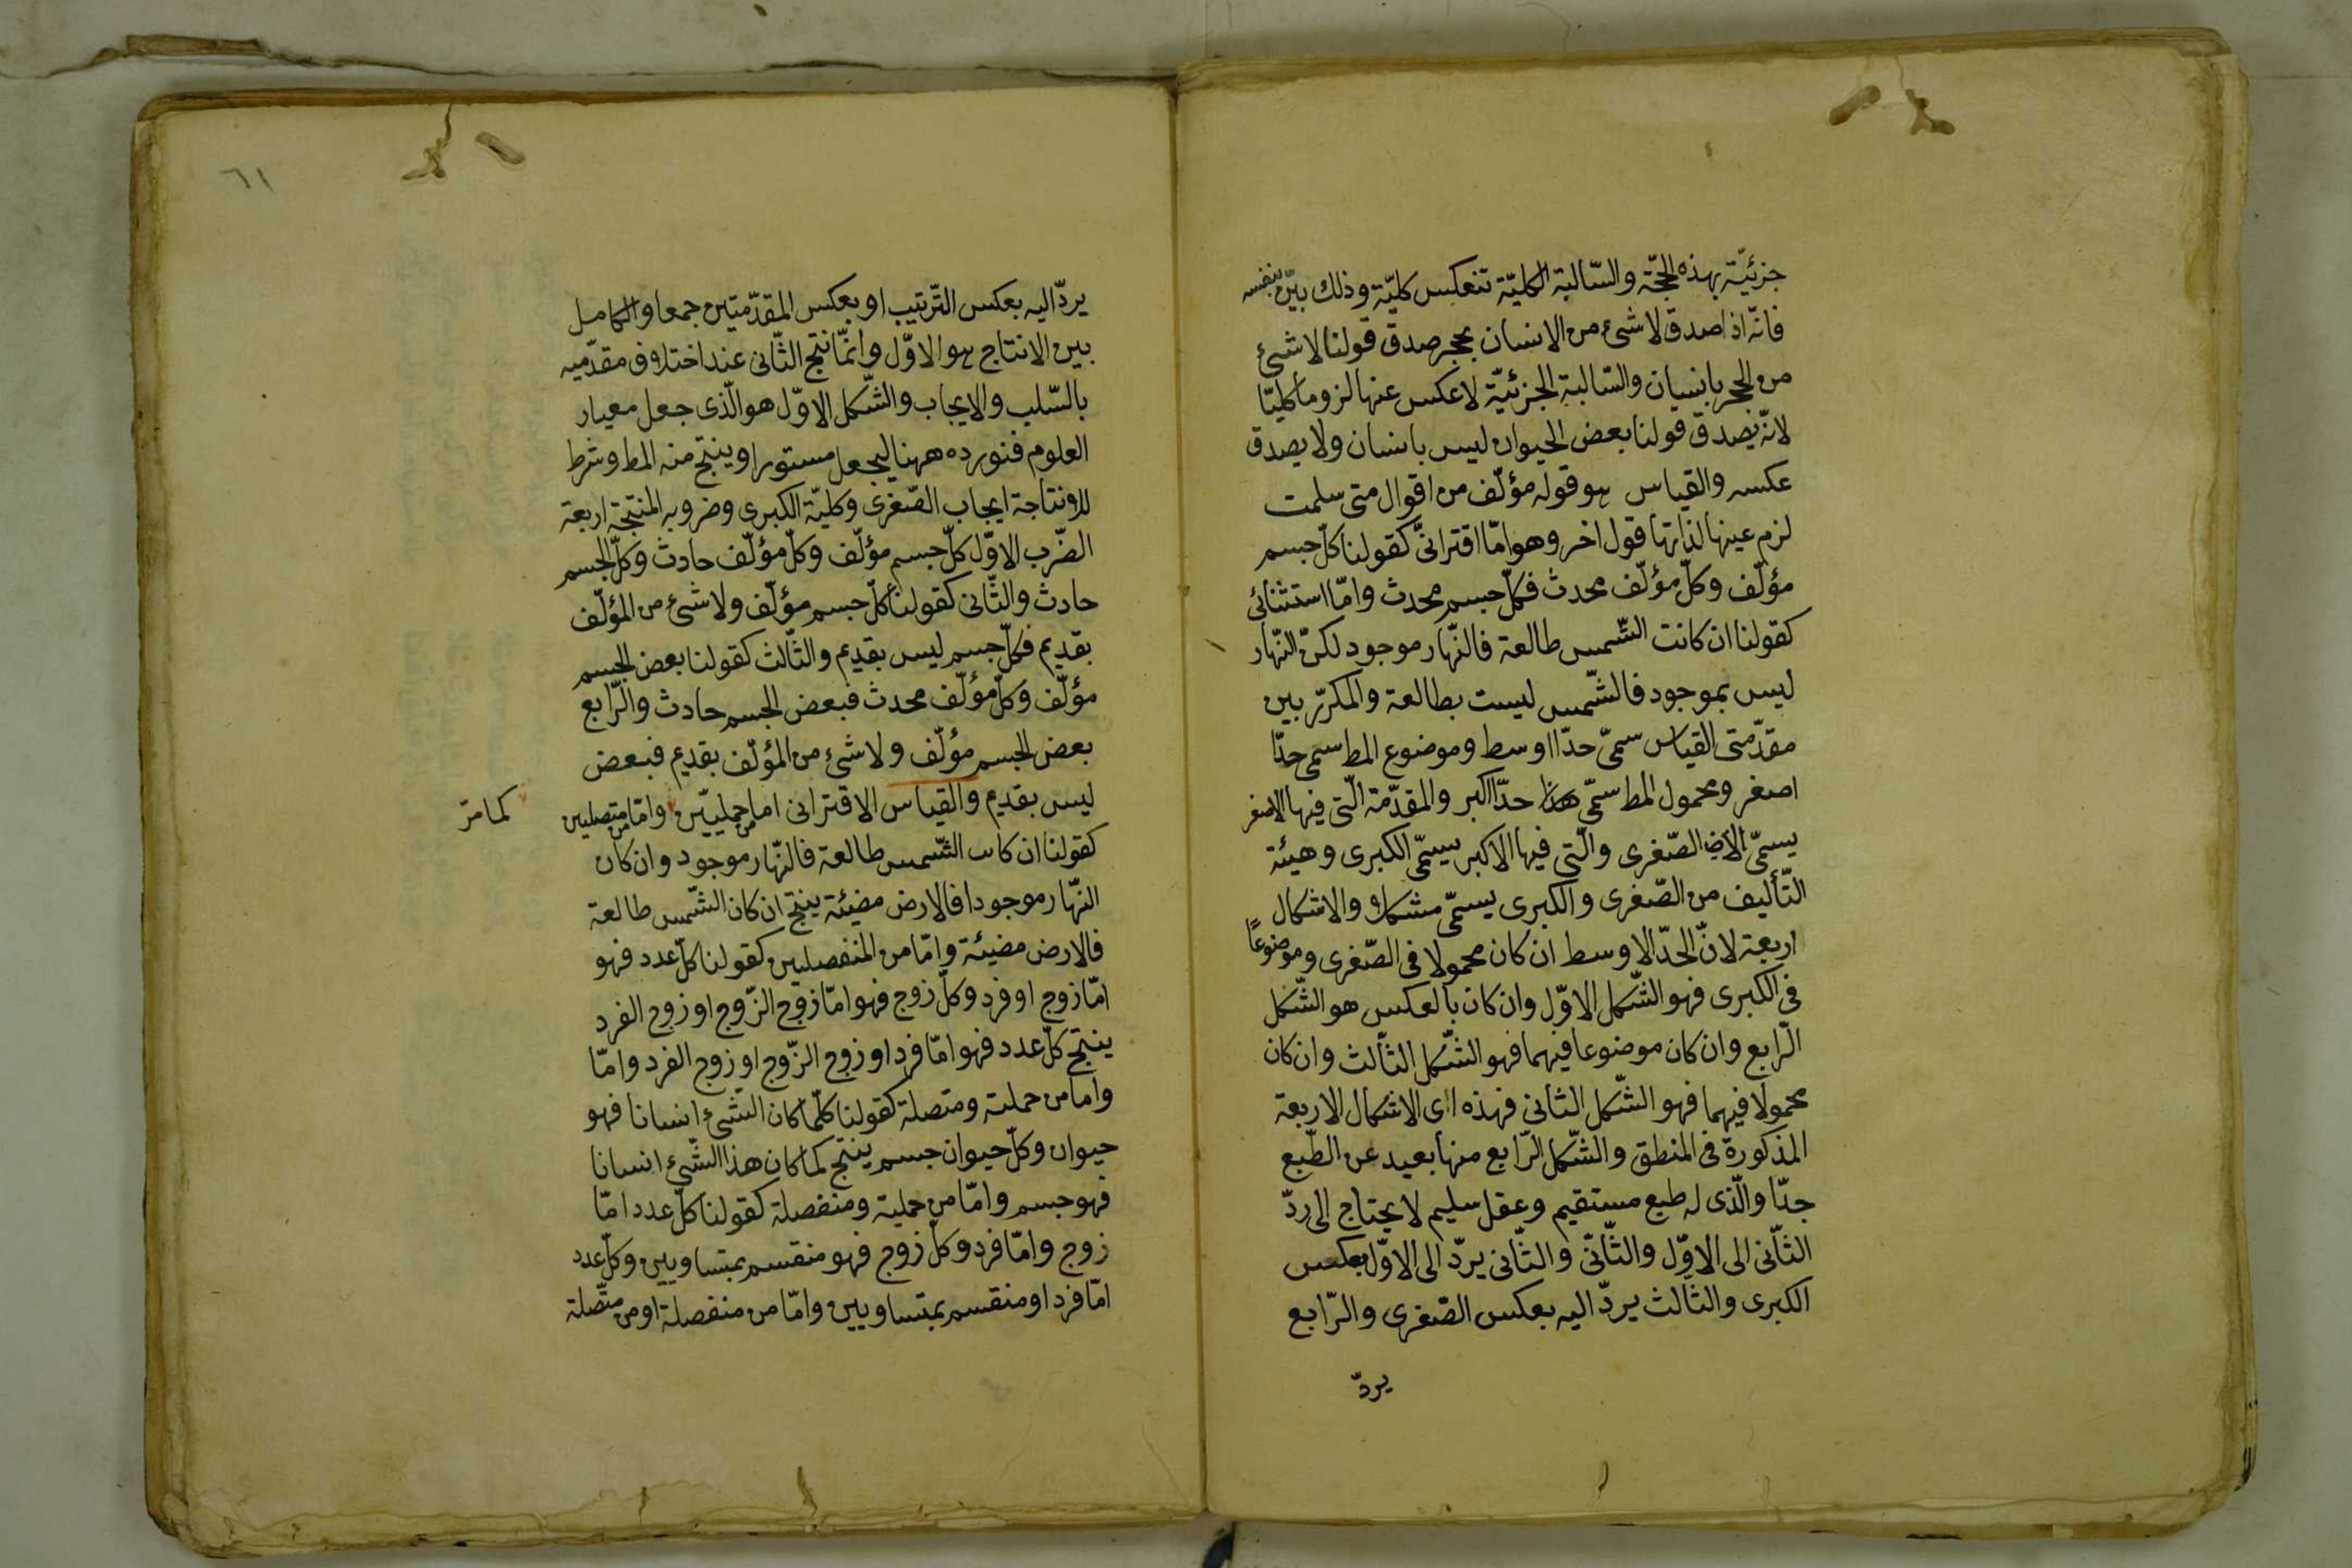 جزئيّة بهذه الحجّة والسّالبة الكليّة تنعكس كليّة وذلك بيّن بنفسه
فانّه اذا صدق لا شئ من الانسان بحجر صدق قولنا لا شئ
من الحجر بانسان والسّالبة الجزئيّة لا عكس عنها لزوما كليّا
لانّه يصدق قولنا بعض الحيوان ليس بانسان ولا يصدق
عكسه والقياس هو قوله مؤلّف من اقوال متى سلمت
لزم عينها لذاتها قول اخر وهو امّا اقترانىّ كقولنا كلّ جسم
مؤلّف وكلّ مؤلّف محدث فكلّ جسم محدث وامّا استثنائى
كقولنا ان كانت الشّمس طالعة فالنّهار موجود لكنّ النّهار
ليس بموجود فالشّمس ليست بطالعة والمكرّر بين
مقدّمتى القياس سمىّ حدّا اوسط وموضوع المط سمى حدّا
اصغر ومحمول المط سمّى حدّا اكبر والمقدّمة الّتى فيها الاصغر
يسمّى الصّغرى والّتى فيها الاكبر يسمّى الكبرى وهيئة
التّأليف من الصّغرى والكبرى يسمّى مشكلا والاشكال
اربعة لانّ الحدّ الاوسط ان كان محمولا فى الصّغرى وموضوعًا
فى الكبرى فهو الشّكل الاوّل وان كان بالعكس هو الشّكل
الرّابع وان كان موضوعا فيهما فهو الشّكل الثّالث وان كان
محمولا فيهما فهو الشّكل الثانى فهذه اى الاشكال الاربعة
المذكورة فى المنطق والشّكل الرّابع منها بعيد عن الطّبع
جدّا والّذى له طبع مستقيم وعقل سليم لا يحتاج الى ردّ
الثّانى الى الاوّل والثّانى والثّانى يردّ الى الاوّل بعكس
الكبرى والثّالث يردّ اليه بعكس الصّغرى والرّابع
يردّ
٦١
يردّ اليه بعكس التّرتيب او بعكس المقدّمتين جمعا والكامل
بين الانتاج هو الاوّل وانّما نتج الثّانى عند اختلاف مقدّميه
بالسّلب والايجاب والشّكل الاوّل هو الّذى جعل معيار
العلوم فنورده ههنا ليجعل مستورا وينتج منه المط وشرط
للانتاجة ايجاب الصّغرى وكليّة الكبرى وضروبه المنتجة اربعة
الضّرب الاوّل كلّ جسم مؤلّف وكلّ مؤلّف حادث وكلّ الجسم
حادث والثّانى كقولنا كلّ جسم مؤلّف ولا شئ من المؤلّف
بقديم فكلّ جسم ليس بقديم والثّالث كقولنا بعض الجسم
مؤلّف وكلّ مؤلّف محدث فبعض الجسم حادث والرّابع
بعض الجسم مؤلّف ولا شئ من المؤلّف بقديم فبعض
ليس بقديم والقياس الاقترانى اما من حمليّين وامّا من متصلين
كما مرّ
كقولنا ان كانت الشّمس طالعة فالنّهار موجود وان كان
النّهار موجودا فالارض مضيئة ينتج ان كان الشّمس طالعة
فالارض مضيئة وامّا من المنفصلين كقولنا كلّ عدد فهو
امّا زوج او فرد وكلّ زوج فهو امّا زوج الزّوج او زوج الفرد
ينتج كلّ عدد فهو امّا فرد او زوج الزّوج او زوج الفرد وامّا
واما من حملية ومتصلة كقولنا كلّما كان الشّئ انسانا فهو
حيوان وكلّ حيوان جسم ينتج كما كان هذا الشّئ انسانا
فهو جسم وامّا من حملية ومنفصلة كقولنا كلّ عدد امّا
زوج وامّا فرد وكلّ زوج فهو منقسم بمتساويين وكلّ عدد
امّا فرد او منقسم بمتساويين وامّا من منفصلة او من متّصلة